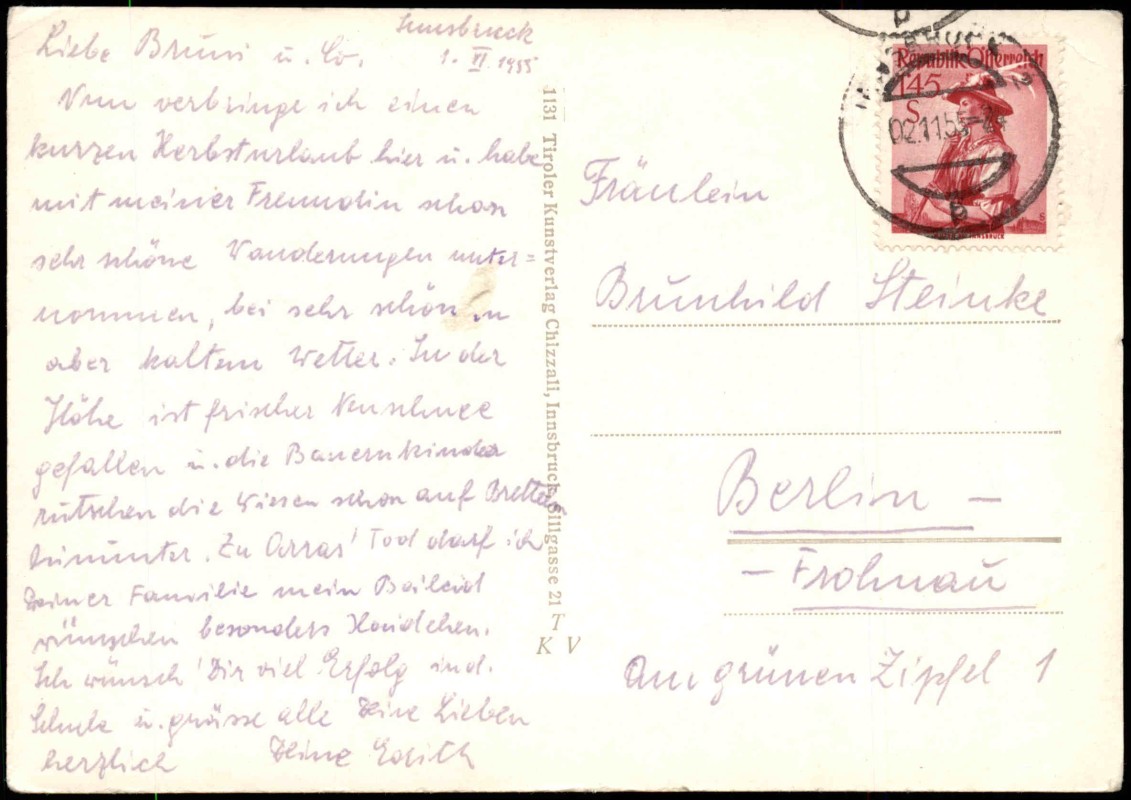 Innsbruck
1. VI. 1955
Liebe Bruni u. Co.
Nun verbringe ich einen
kurzen Herbsturlaub hier u. habe
mit meiner Freundin schon
sehr schöne Wanderungen unter=
nommen, bei sehr schönem
aber kaltem Wetter. In der
Höhe ist frischer Neuschnee
gefallen u. die Bauernkinder
rutschen die Wiesen schon auf Bretter
hinunter. Zu Arras' Tod darf ich
Deiner Familie mein Beileid
wünschen besonders Heidchen.
Ich wünsch' Dir viel Erfolg ind.
Schule u. grüsse alle Deine Lieben
herzlich Deine Edith
1131 Tiroler Kunstverlag Chizzali, Innsbruck, Sillgasse 21
T
K V
Republik Österreich
1.45
S
INNSBRUCK 2
02.11.55
b
Fräulein
Brunhild Steinke
Berlin -
- Frohnau
Am grünen Zipfel 1